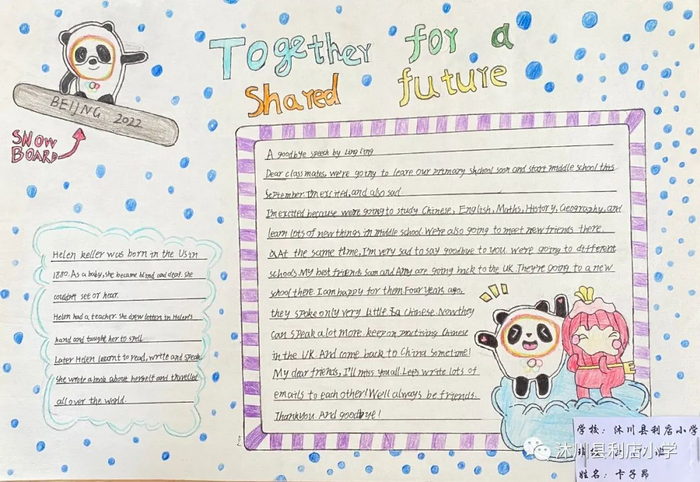 Together for a
Shared future
BEIJING 2022
SNOW
BOARD
A goodbye speech by Ling Ling
Dear classmates, we're going to leave our primary shchool soon and start middle school this
September. I'm excited, and also sad
I'm excited because we're going to study Chinese, English, Maths, History, Geography, and
learn lots of new things in middle school. We're also going to meet new friends there.
At the same time, I'm very sad to say goodbye to you. we're going to different
schools. My best friends Sam and Amy are going back to the UK. They're going to a new
school there. I am happy for them Four years ago,
they spoke only very little Chinese. Now they
can speak a lot more. keep on practising Chinese
in the UK. And come back to China sometime!
My dear friends, I'll miss you all. Let's write lots of
emails to each other! We'll always be friends.
Thank you. And goodbye!
Helen Keller was born in the Us in
1880. As a baby, she became blind and deaf. she
couldn't see or hear.
Helen had a teacher. She drew letters in Helen's
hand and taught her to spell.
Later Helen learnt to read, write and speak.
she wrote a book about herself and travelled
all over the world.
学校: 沐川县利店小学
姓名: 卞子昂
沐川县利店小学